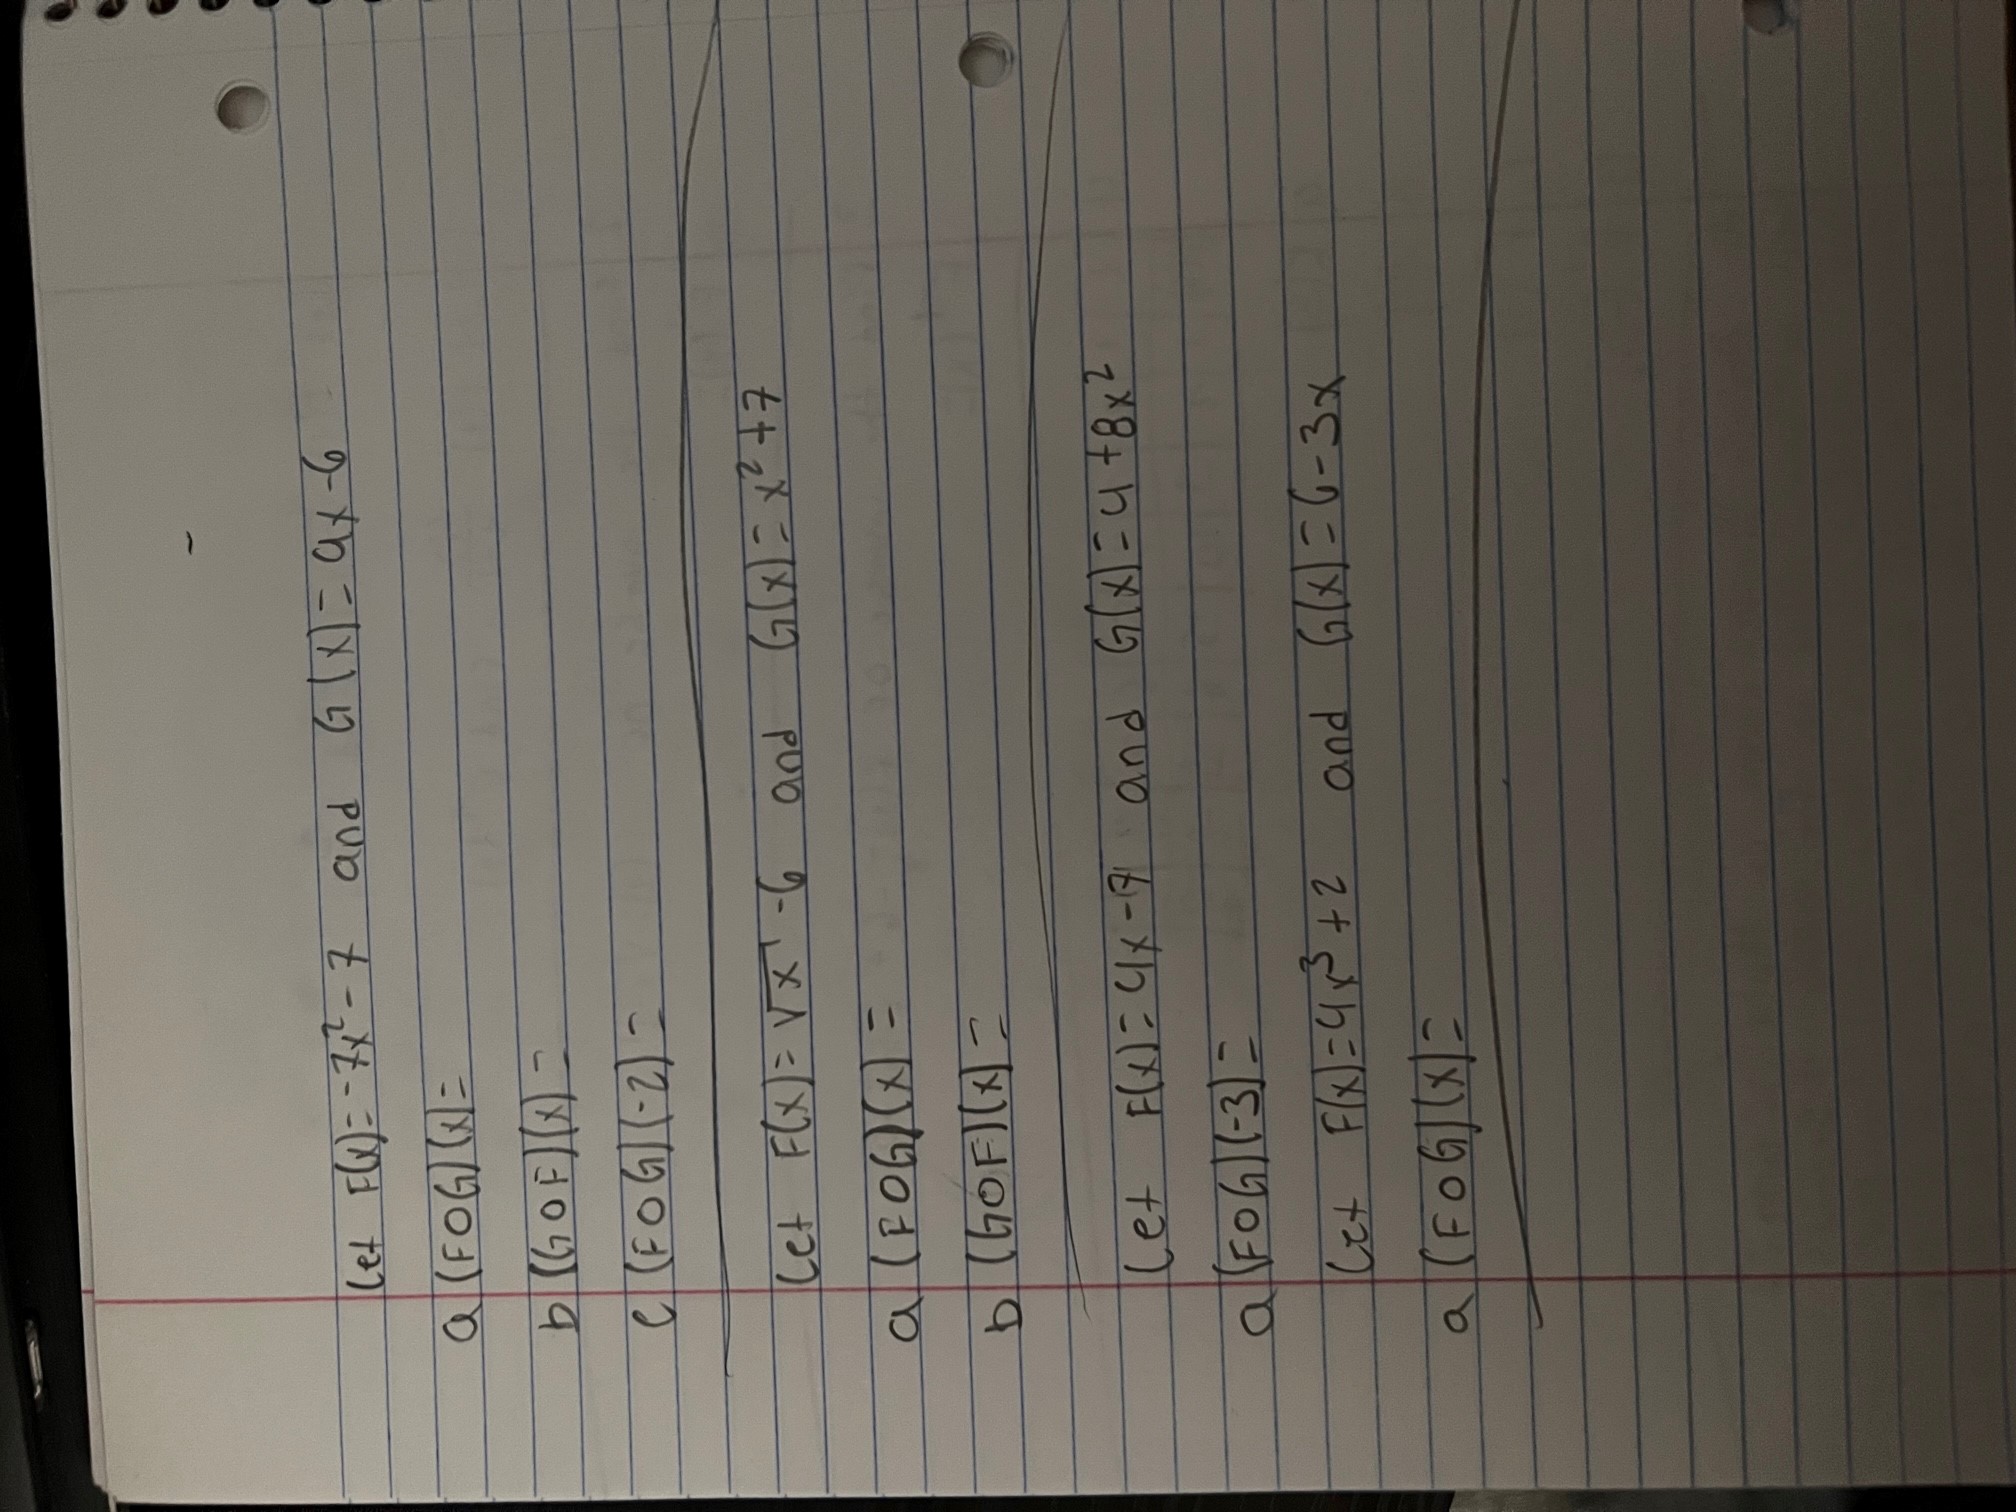 Let F(x)=-7x²-7 and G(x)=9x-6
a (FOG)(x)=
b (GOF)(x)=
c (FOG)(-2)=
Let F(x)=√x -6 and G(x)=x²+7
a (FOG)(x)=
b (GOF)(x)=
Let F(x)=4x-7 and G(x)=4+8x²
a (FOG)(-3)=
Let F(x)=4x³+2 and G(x)=6-3x
a (FOG)(x)=